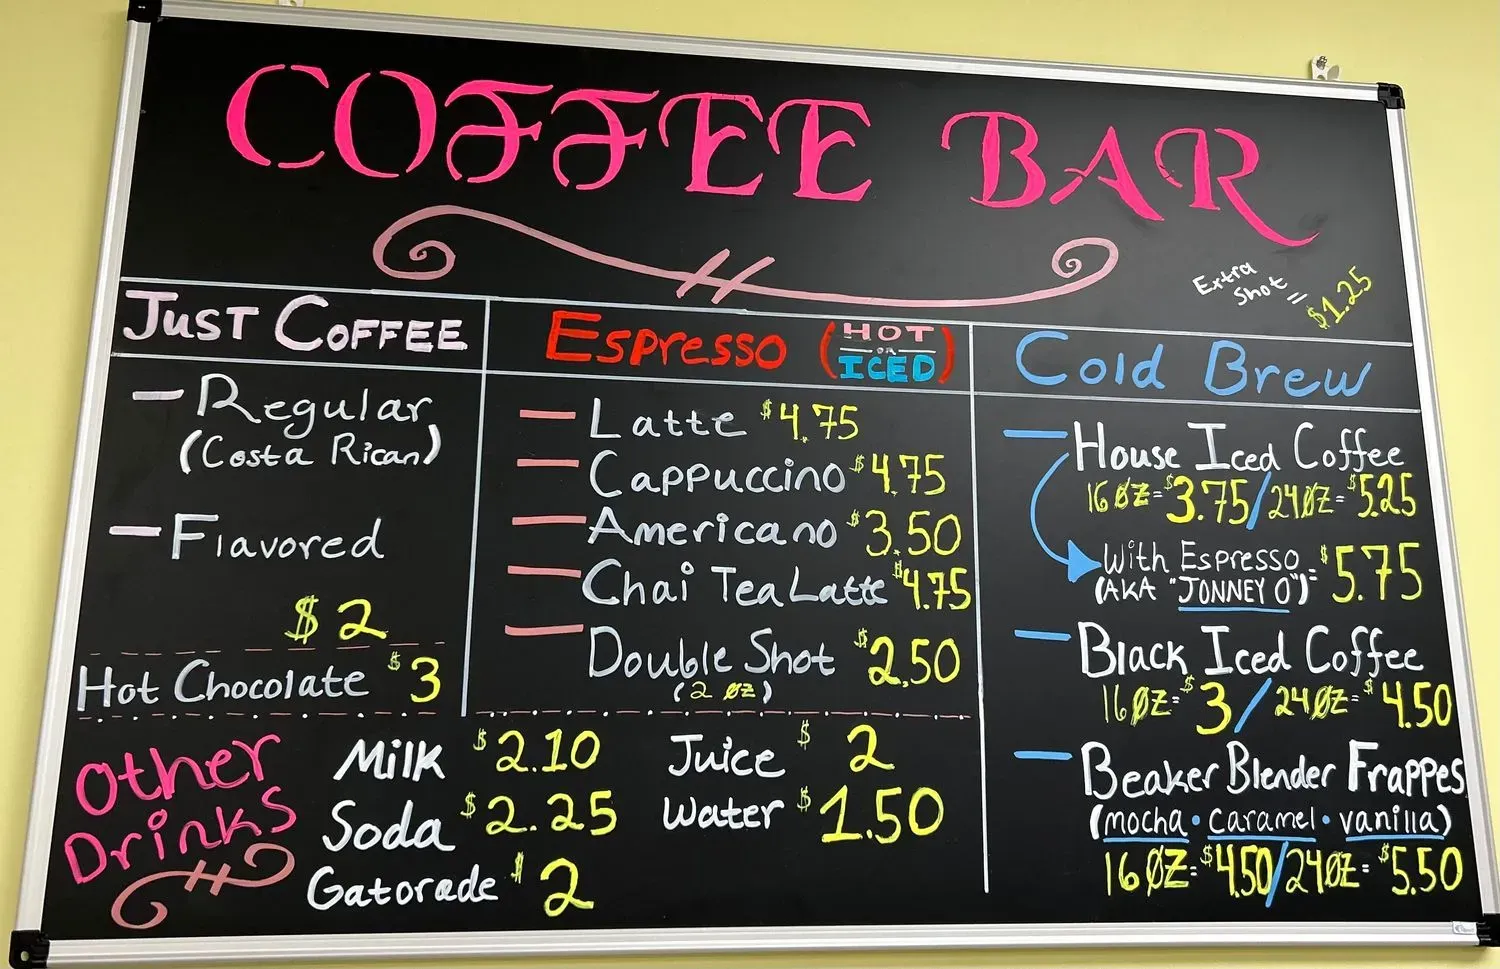 COFFEE BAR
Extra
Shot = $1.25
JUST COFFEE
- Regular
(Costa Rican)
- Flavored
$2
Hot Chocolate $3
Espresso (HOT OR ICED)
- Latte $4.75
- Cappuccino $4.75
- Americano $3.50
- Chai Tea Latte $4.75
- Double Shot $2.50
(2 oz)
Cold Brew
- House Iced Coffee
16 OZ = $3.75 / 24 OZ = $5.25
With Espresso = $5.75
(AKA "JONNEY O")
- Black Iced Coffee
16 OZ = $3 / 24 OZ = $4.50
- Beaker Blender Frappes
(mocha • caramel • vanilla)
16 OZ = $4.50 / 24 OZ = $5.50
Other
Drinks
Milk $2.10
Soda $2.25
Gatorade $2
Juice $2
Water $1.50